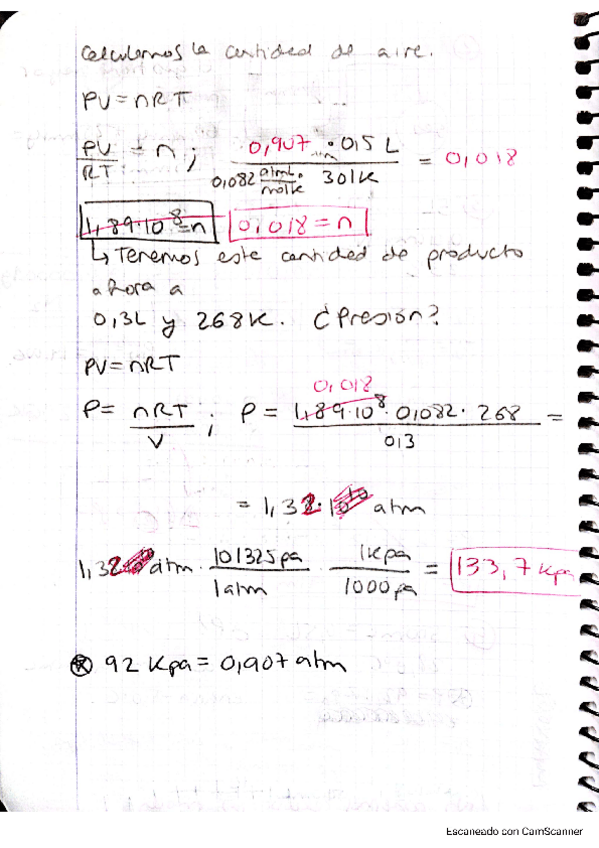 Calculemos la cantidad de aire.
PV = nRT
PV/RT = n ; 0,907 · 0,5 L / 0,082 atmL/molK · 301K = 0,018
1,89·10⁸=n 0,018 = n
↳ Tenemos este cantidad de producto
ahora a
0,3L y 268K. ¿Presión?
PV = nRT
0,018
P = nRT/V ; P = 1,89·10⁸ · 0,082 · 268 / 0,3 =
= 1,32 atm
1,32 atm · 101325 pa/1 atm · 1Kpa/1000 pa = 133,7 Kpa
⊛ 92 Kpa = 0,907 atm
Escaneado con CamScanner